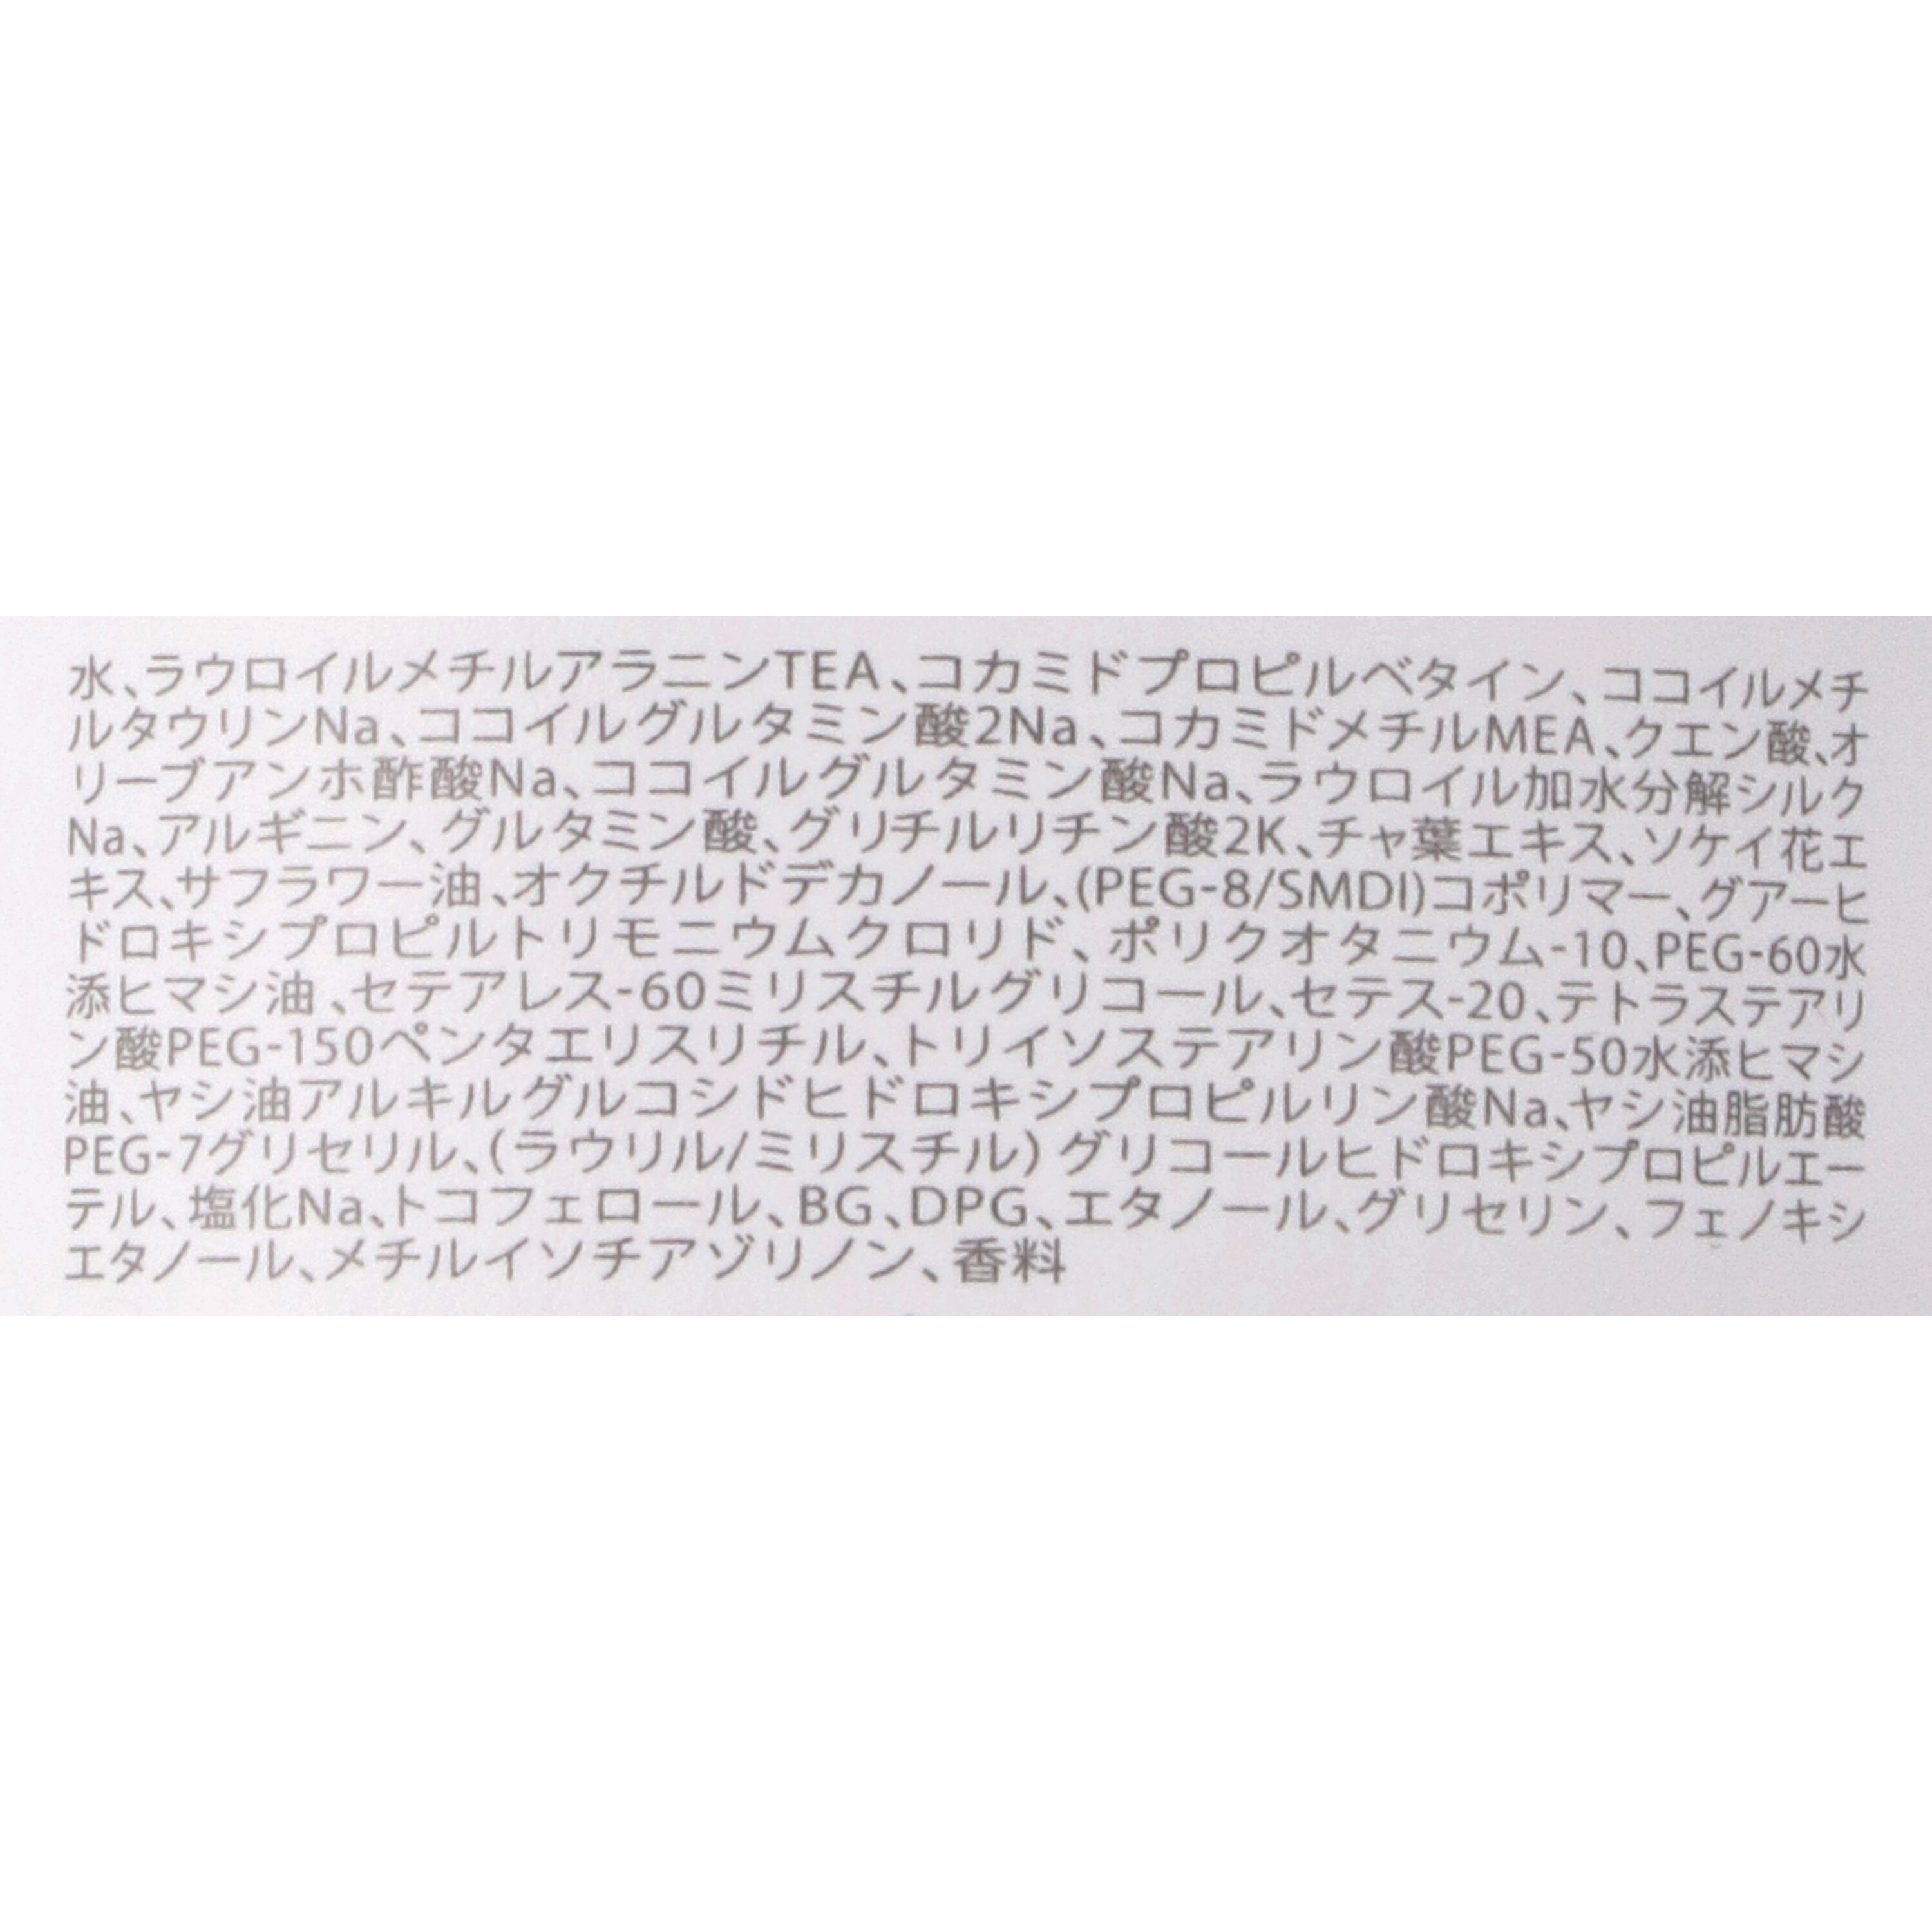 水、ラウロイルメチルアラニンTEA、コカミドプロピルベタイン、ココイルメチ
ルタウリンNa、ココイルグルタミン酸2Na、コカミドメチルMEA、クエン酸、オ
リーブアンホ酢酸Na、ココイルグルタミン酸Na、ラウロイル加水分解シルク
Na、アルギニン、グルタミン酸、グリチルリチン酸2K、チャ葉エキス、ソケイ花エ
キス、サフラワー油、オクチルドデカノール、(PEG-8/SMDI)コポリマー、グアーヒ
ドロキシプロピルトリモニウムクロリド、ポリクオタニウム-10、PEG-60水
添ヒマシ油、セテアレス-60ミリスチルグリコール、セテス-20、テトラステアリ
ン酸PEG-150ペンタエリスリチル、トリイソステアリン酸PEG-50水添ヒマシ
油、ヤシ油アルキルグルコシドヒドロキシプロピルリン酸Na、ヤシ油脂肪酸
PEG-7グリセリル、(ラウリル/ミリスチル)グリコールヒドロキシプロピルエー
テル、塩化Na、トコフェロール、BG、DPG、エタノール、グリセリン、フェノキシ
エタノール、メチルイソチアゾリノン、香料